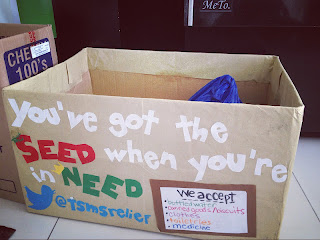 MeTo.
CHE
100's
You've got the
SEED when you're
in NEED
@TSMSrelief
We accept
• bottled water
• canned goods/biscuits
• clothes
• toiletries
• medicine